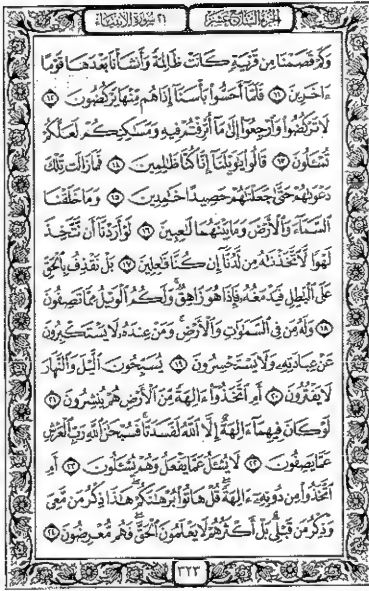 الجزء السابع عشر
٢١ سورة الأنبياء
وَكَمْ قَصَمْنَا مِن قَرْيَةٍ كَانَتْ ظَالِمَةً وَأَنشَأْنَا بَعْدَهَا قَوْمًا
ءَاخَرِينَ ١١ فَلَمَّآ أَحَسُّوا۟ بَأْسَنَآ إِذَا هُم مِّنْهَا يَرْكُضُونَ ١٢
لَا تَرْكُضُوا۟ وَٱرْجِعُوٓا۟ إِلَىٰ مَآ أُتْرِفْتُمْ فِيهِ وَمَسَٰكِنِكُمْ لَعَلَّكُمْ
تُسْـَٔلُونَ ١٣ قَالُوا۟ يَٰوَيْلَنَآ إِنَّا كُنَّا ظَٰلِمِينَ ١٤ فَمَا زَالَت تِّلْكَ
دَعْوَىٰهُمْ حَتَّىٰ جَعَلْنَٰهُمْ حَصِيدًا خَٰمِدِينَ ١٥ وَمَا خَلَقْنَا
ٱلسَّمَآءَ وَٱلْأَرْضَ وَمَا بَيْنَهُمَا لَٰعِبِينَ ١٦ لَوْ أَرَدْنَآ أَن نَّتَّخِذَ
لَهْوًا لَّٱتَّخَذْنَٰهُ مِن لَّدُنَّآ إِن كُنَّا فَٰعِلِينَ ١٧ بَلْ نَقْذِفُ بِٱلْحَقِّ
عَلَى ٱلْبَٰطِلِ فَيَدْمَغُهُۥ فَإِذَا هُوَ زَاهِقٌ وَلَكُمُ ٱلْوَيْلُ مِمَّا تَصِفُونَ
١٨ وَلَهُۥ مَن فِى ٱلسَّمَٰوَٰتِ وَٱلْأَرْضِ وَمَنْ عِندَهُۥ لَا يَسْتَكْبِرُونَ
عَنْ عِبَادَتِهِۦ وَلَا يَسْتَحْسِرُونَ ١٩ يُسَبِّحُونَ ٱلَّيْلَ وَٱلنَّهَارَ
لَا يَفْتُرُونَ ٢٠ أَمِ ٱتَّخَذُوٓا۟ ءَالِهَةً مِّنَ ٱلْأَرْضِ هُمْ يُنشِرُونَ ٢١
لَوْ كَانَ فِيهِمَآ ءَالِهَةٌ إِلَّا ٱللَّهُ لَفَسَدَتَا فَسُبْحَٰنَ ٱللَّهِ رَبِّ ٱلْعَرْشِ
عَمَّا يَصِفُونَ ٢٢ لَا يُسْـَٔلُ عَمَّا يَفْعَلُ وَهُمْ يُسْـَٔلُونَ ٢٣ أَمِ
ٱتَّخَذُوا۟ مِن دُونِهِۦٓ ءَالِهَةً قُلْ هَاتُوا۟ بُرْهَٰنَكُمْ هَٰذَا ذِكْرُ مَن مَّعِىَ
وَذِكْرُ مَن قَبْلِى بَلْ أَكْثَرُهُمْ لَا يَعْلَمُونَ ٱلْحَقَّ فَهُم مُّعْرِضُونَ ٢٤
٣٢٣